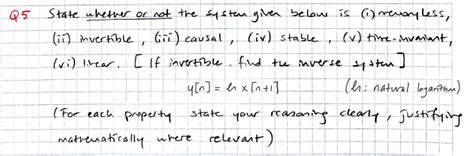 Q5 State whether or not the system given below is (i) memoryless,
(ii) invertible, (iii) causal, (iv) stable, (v) time-invariant,
(vi) linear. [If invertible find the inverse system]
y[n] = ln x[n+1] (ln: natural logarithm)
(For each property state your reasoning clearly, justifying
mathematically where relevant)